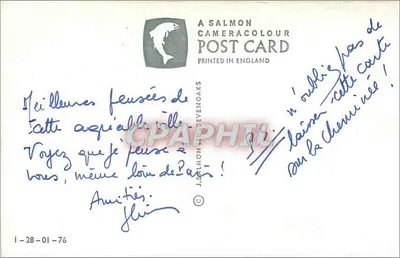 A SALMON
CAMERACOLOUR
POST CARD
PRINTED IN ENGLAND
Meilleures pensées de
cette agréable ville.
Voyez que je pense à
vous, même loin de Paris !
Amitiés.
P.S.
n'oubliez pas de
laisser cette carte
sur la cheminée !
© J. SALMON SEVENOAKS
CPAPHIL.COM
1-28-01-76